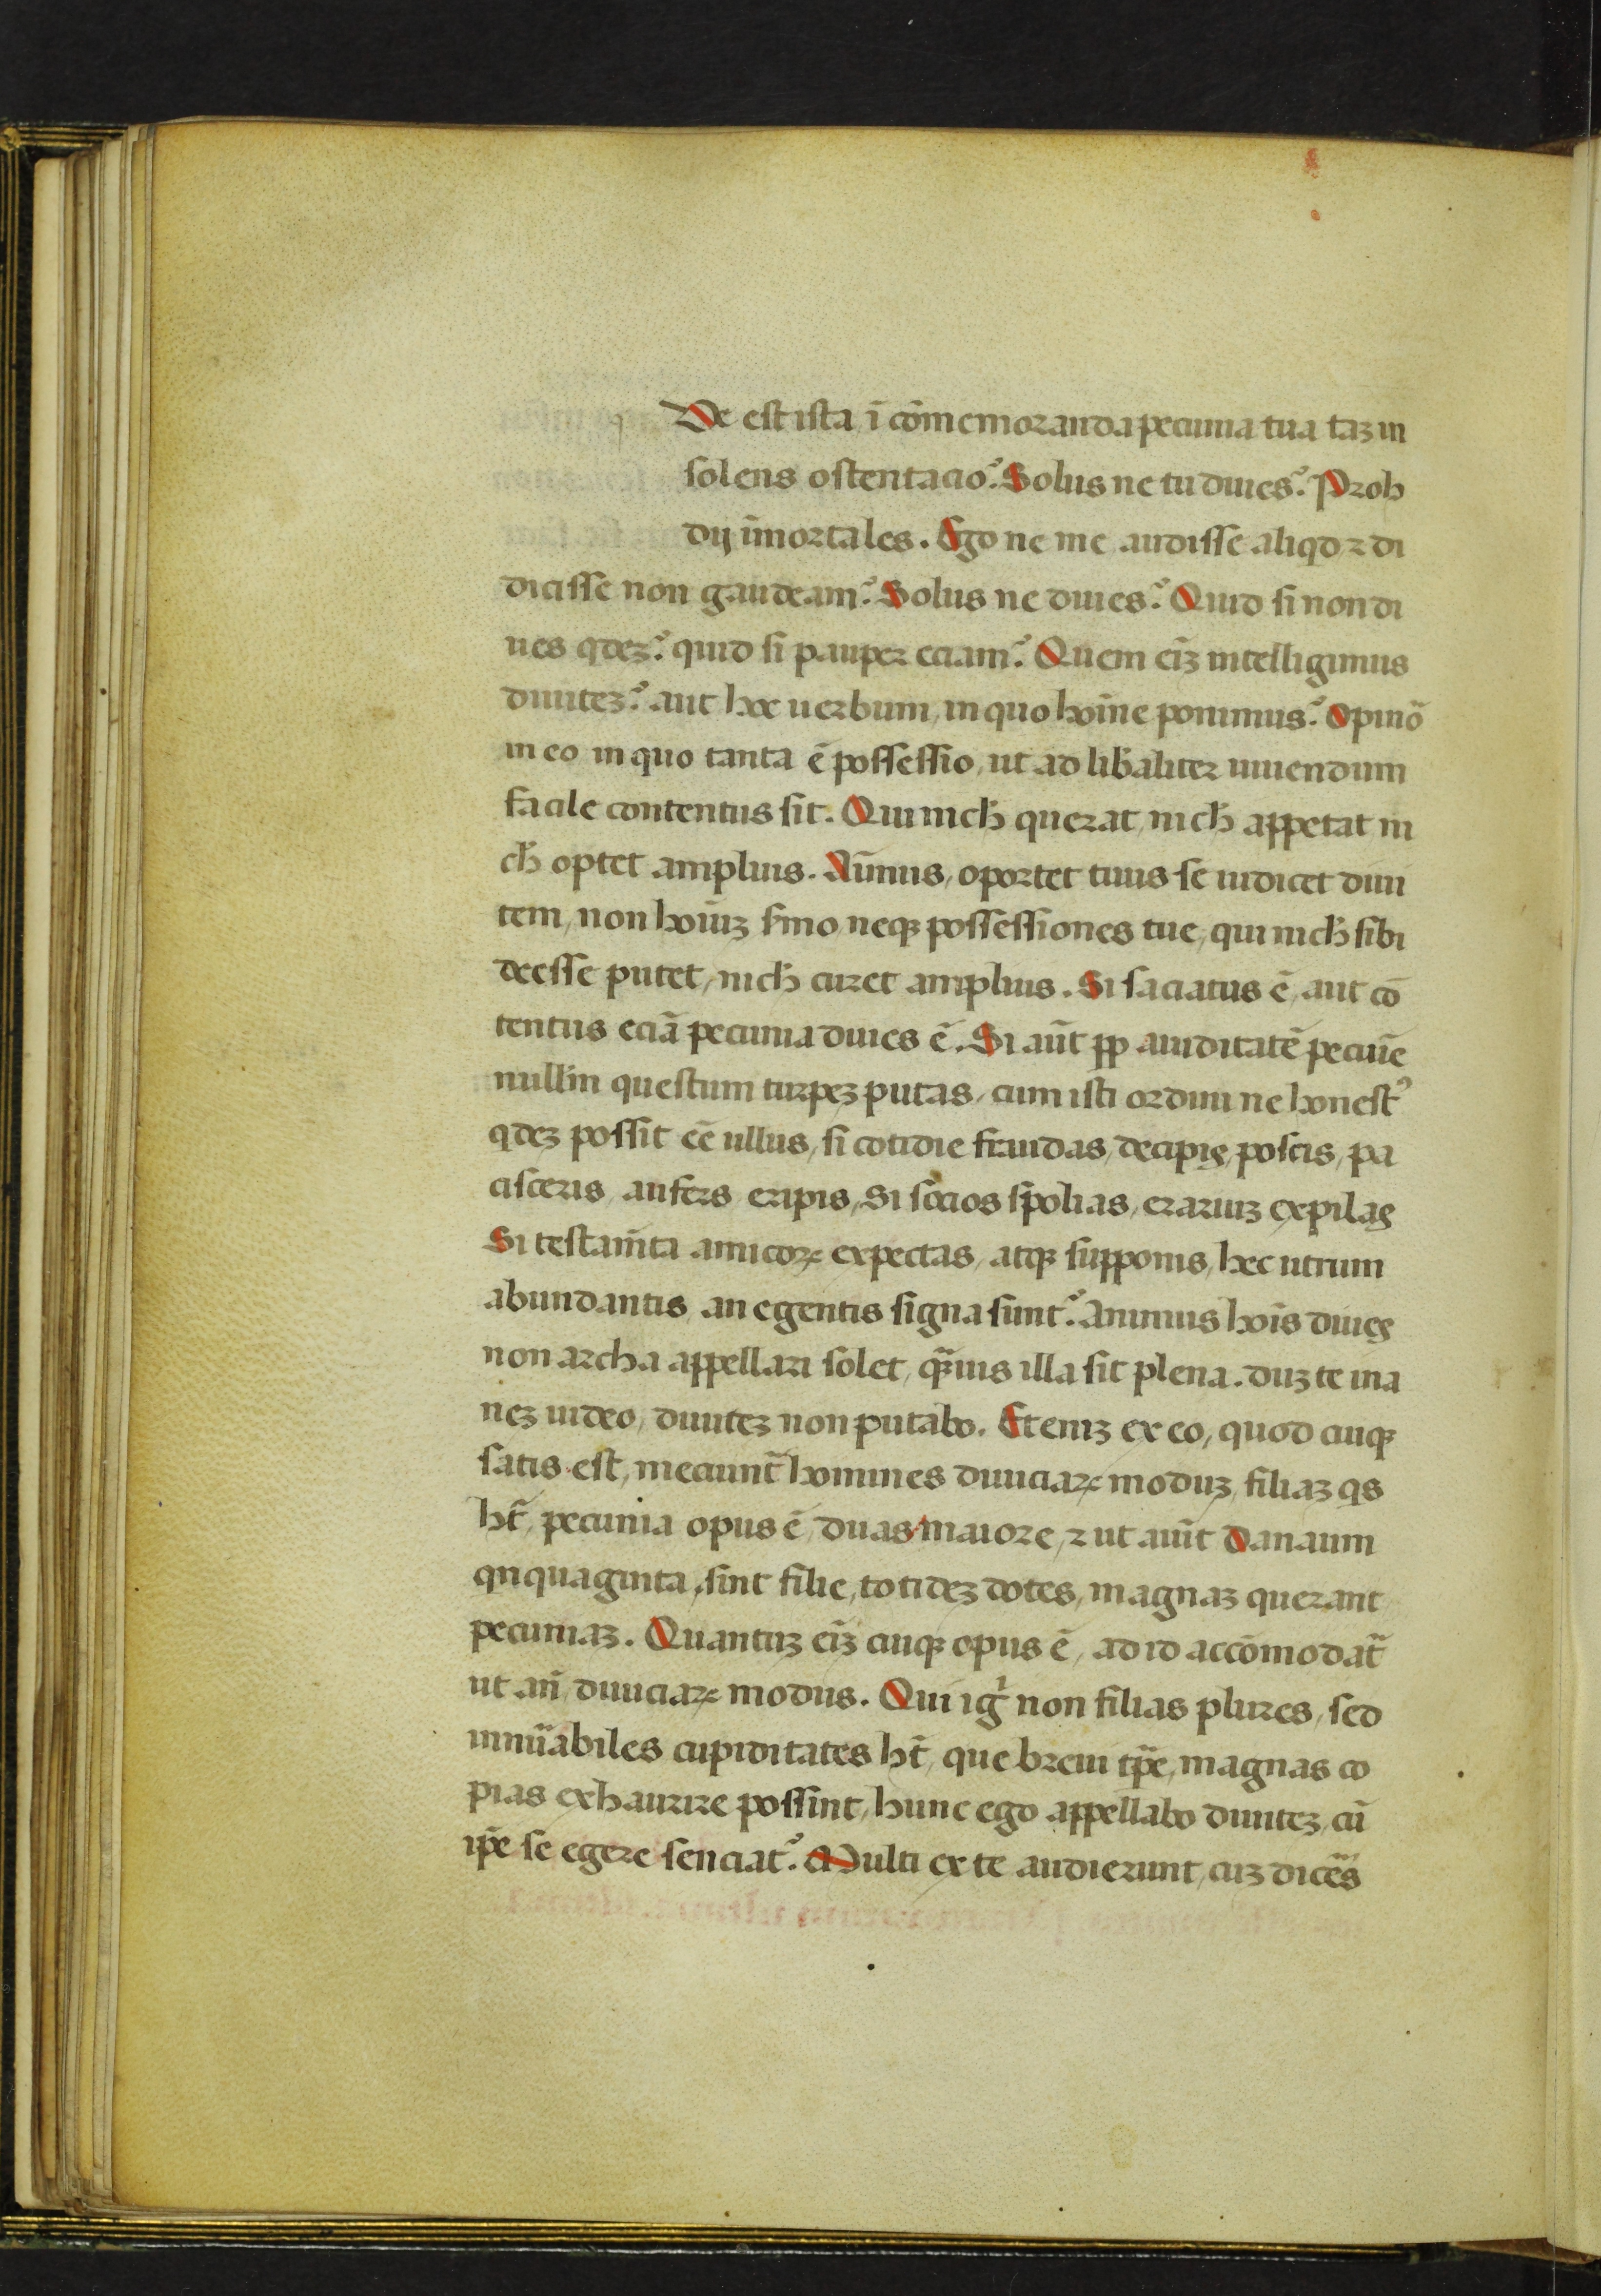 Ve est ista, ī cōmemoranda pecunia tua taꝫ in
solens ostentacio? Solus ne tu diues? Proh
dij īmortales. Ego ne me audisse aliqd ⁊ di
dicisse non gaudeam? Solus ne diues? Quid si non di
ues qdeꝫ? quid si pauper eciam? Quem eīꝫ intelligimus
diuiteꝫ? aut hoc uerbum, in quo hoīne ponimus? Opinō
in eo in quo tanta ē possessio, ut ad lib̄aliter uiuendum
facile contentus sit. Qui nich̄ querat, nich̄ appetat ni
ch̄ optet amplius. Aīmus, oportet tuus se iudicet diui
tem, non hoīuꝫ s̄mo neqꝫ possessiones tue, qui nich̄ sibi
deesse putet, nich̄ curet amplius. Si saciatus ē, aut cō
tentus eciā pecunia diues ē. Si aūt ꝓp auiditatē pecuīe
nullū questum turpeꝫ putas, cum isti ordini ne honestꝰ
qdeꝫ possit eē ullus, si cotidie fraudas, decipis, poscis, pa
cisceris, aufers eripis, Si socios spolias, erariuꝫ expilas
Si testam̄ta amicoꝝ expectas, atqꝫ supponis, hec utrum
abundantis, an egentis signa sunt? Animus hoīs diues
non archa appellari solet, qᷓuis illa sit plena. duꝫ te ina
neꝫ uideo, diuiteꝫ non putabo. Eteniꝫ ex eo, quod cuiqꝫ
satis est, meciunt̄ homines diuiciaꝝ moduꝫ, filiaꝫ qs
ht̄, pecunia opus ē, duas maiore, ⁊ ut aiūt Danaum
qnquaginta, sint filie, totideꝫ dotes, magnaꝫ querant
pecuniaꝫ. Quantuꝫ eīꝫ cuiqꝫ opus ē, ad id accōmodat̄
ut an̄, diuiciaꝝ modus. Qui igr̄ non filias plures, sed
innūabiles cupiditates ht̄, que breui tp̄e, magnas co
pias exhaurire possint, hunc ego appellabo diuiteꝫ, cū
ip̄e se egere senciat? Multi ex te audierunt, cuꝫ dicēs